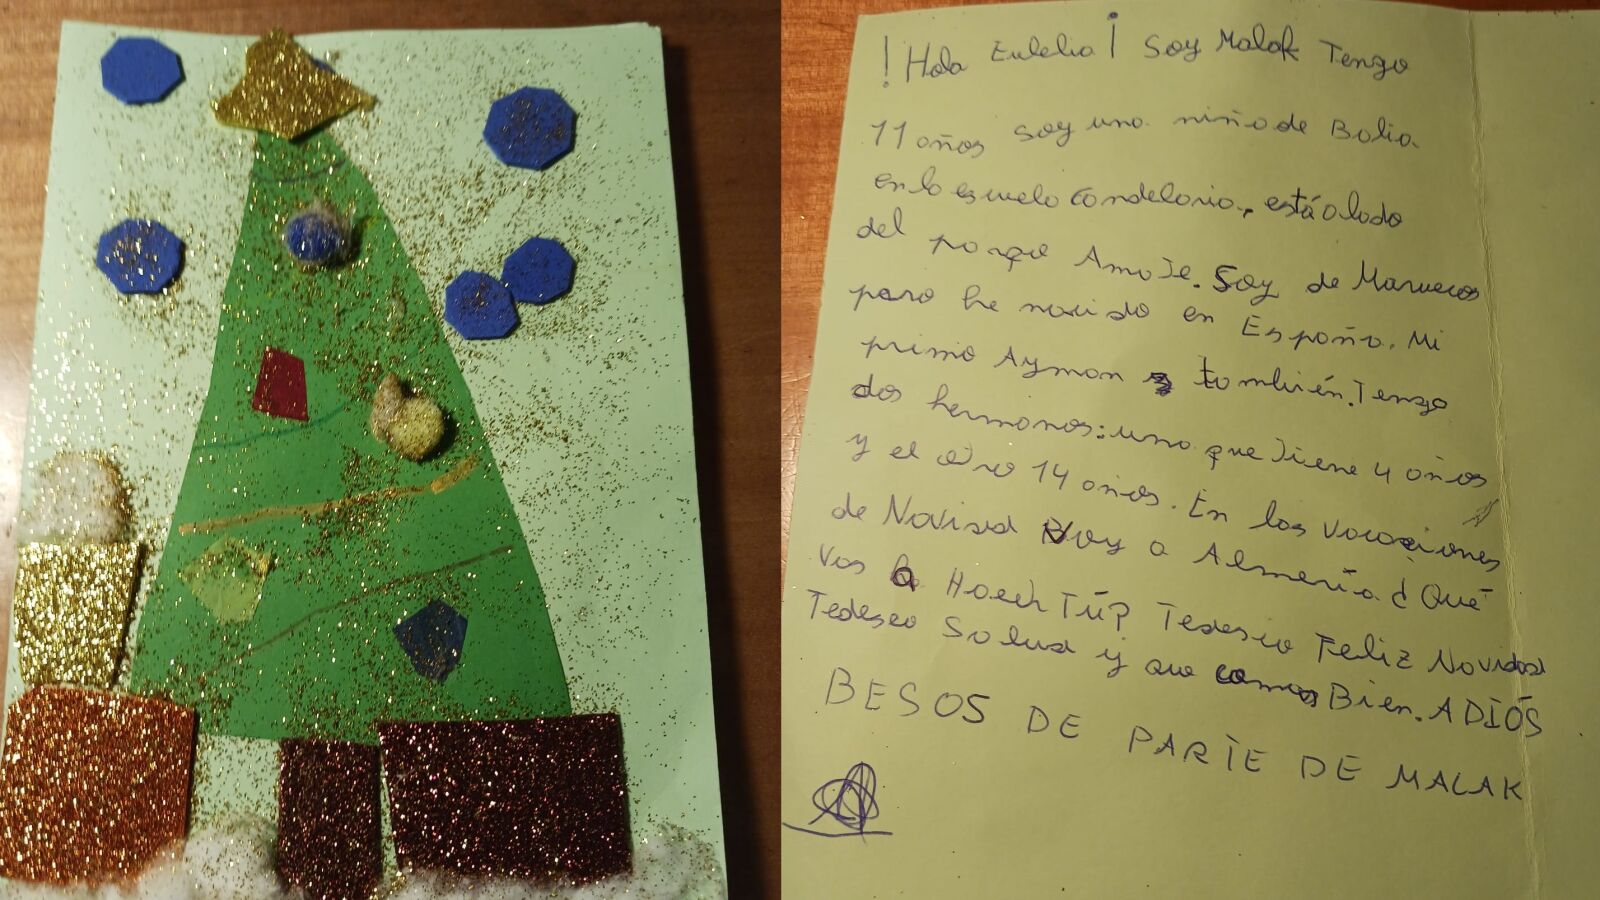 ! Hola Eulelia ¡ Soy Malak Tengo
11 años soy una niña de Bolia.
en la escuela Candelaria, está a lado
del parque Amate. Soy de Marruecos
paro he nacido en España. Mi
primo Ayman también. Tengo
dos hermanos: uno que tiene 4 años
y el otro 14 años. En las vacaciones
de Navidad Voy a Almería ¿ Qué
vas a Hacer Tú? Tedeseo Feliz Navidad
Tedeseo Salud y que comas Bien. ADIÓS
BESOS DE PARTE DE MALAK